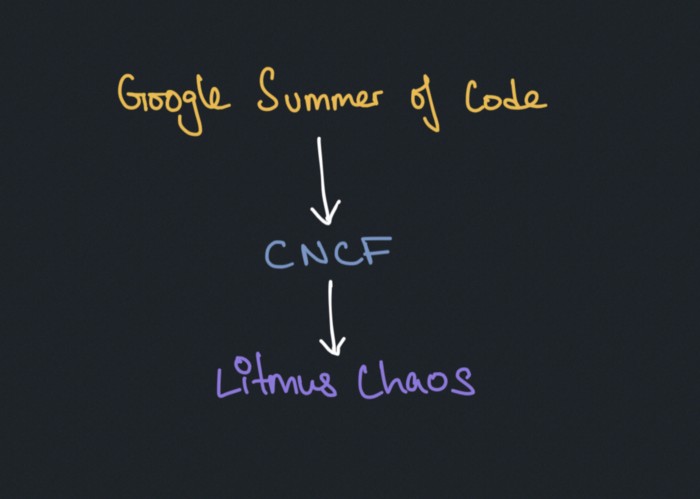 Google Summer of Code
CNCF
Litmus Chaos